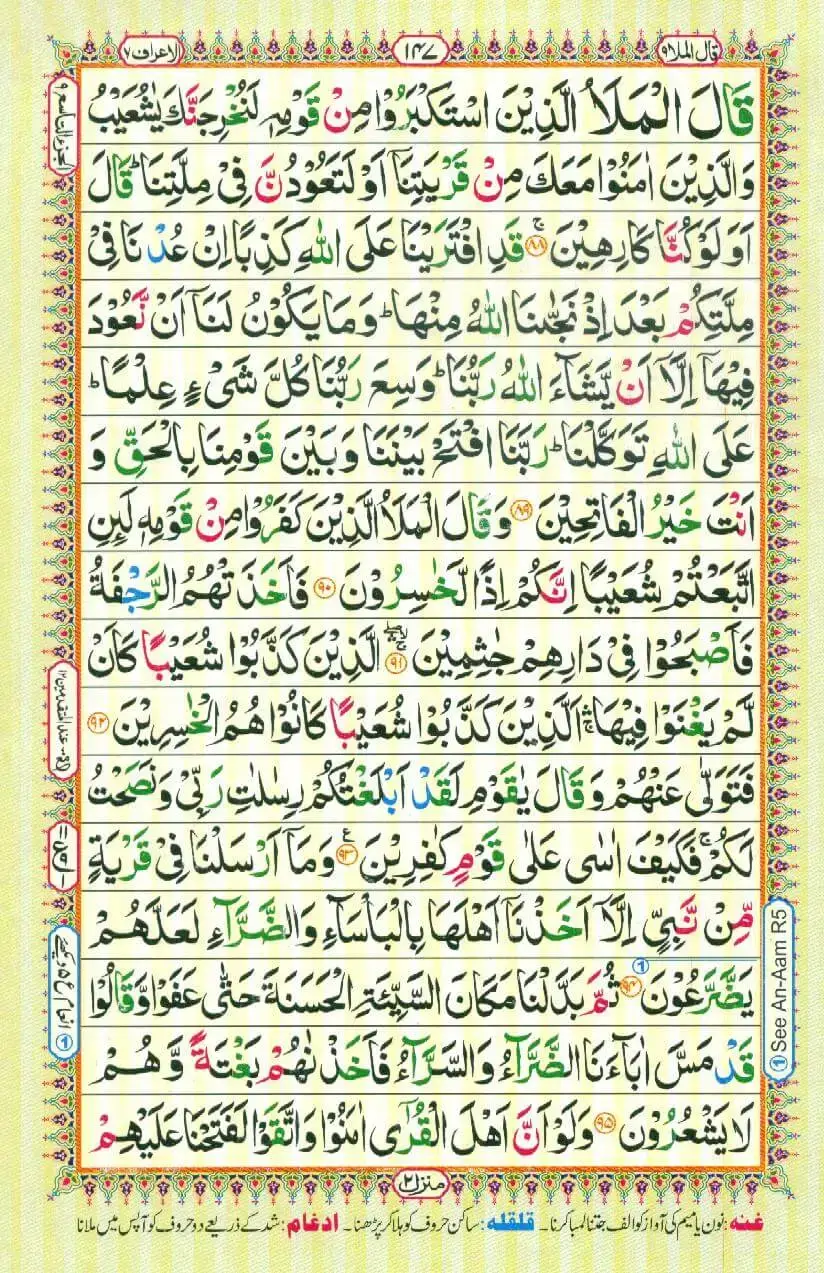 قال الملا ٩
١٤٧
الاعراف ٧
الجزء التاسع ٩
قَالَ الْمَلَاُ الَّذِیْنَ اسْتَكْبَرُوْا مِنْ قَوْمِهٖ لَنُخْرِجَنَّكَ یٰشُعَیْبُ
وَالَّذِیْنَ اٰمَنُوْا مَعَكَ مِنْ قَرْیَتِنَاۤ اَوْ لَتَعُوْدُنَّ فِیْ مِلَّتِنَا ؕ قَالَ
اَوَلَوْ كُنَّا كَارِهِیْنَ ۚ﴿۸۸﴾ قَدِ افْتَرَیْنَا عَلَی اللّٰهِ كَذِبًا اِنْ عُدْنَا فِیْ
مِلَّتِكُمْ بَعْدَ اِذْ نَجّٰىنَا اللّٰهُ مِنْهَا ؕ وَمَا یَكُوْنُ لَنَاۤ اَنْ نَّعُوْدَ
فِیْهَاۤ اِلَّاۤ اَنْ یَّشَآءَ اللّٰهُ رَبُّنَا ؕ وَسِعَ رَبُّنَا كُلَّ شَیْءٍ عِلْمًا ؕ
عَلَی اللّٰهِ تَوَكَّلْنَا ؕ رَبَّنَا افْتَحْ بَیْنَنَا وَبَیْنَ قَوْمِنَا بِالْحَقِّ وَ
اَنْتَ خَیْرُ الْفَاتِحِیْنَ ﴿۸۹﴾ وَقَالَ الْمَلَاُ الَّذِیْنَ كَفَرُوْا مِنْ قَوْمِهٖ لَىِٕنِ
اتَّبَعْتُمْ شُعَیْبًا اِنَّكُمْ اِذًا لَّخٰسِرُوْنَ ﴿۹۰﴾ فَاَخَذَتْهُمُ الرَّجْفَةُ
فَاَصْبَحُوْا فِیْ دَارِهِمْ جٰثِمِیْنَ ﴿۹۱﴾ الَّذِیْنَ كَذَّبُوْا شُعَیْبًا كَاَنْ
لَّمْ یَغْنَوْا فِیْهَا ۛۚ اَلَّذِیْنَ كَذَّبُوْا شُعَیْبًا كَانُوْا هُمُ الْخٰسِرِیْنَ ﴿۹۲﴾
فَتَوَلّٰی عَنْهُمْ وَقَالَ یٰقَوْمِ لَقَدْ اَبْلَغْتُكُمْ رِسٰلٰتِ رَبِّیْ وَنَصَحْتُ
لَكُمْ ۚ فَكَیْفَ اٰسٰی عَلٰی قَوْمٍ كٰفِرِیْنَ ﴿۹۳﴾ وَمَاۤ اَرْسَلْنَا فِیْ قَرْیَةٍ
مِّنْ نَّبِیٍّ اِلَّاۤ اَخَذْنَاۤ اَهْلَهَا بِالْبَاْسَآءِ وَالضَّرَّآءِ لَعَلَّهُمْ
یَضَّرَّعُوْنَ ﴿۹۴﴾ ① ثُمَّ بَدَّلْنَا مَكَانَ السَّیِّئَةِ الْحَسَنَةَ حَتّٰی عَفَوْا وَّقَالُوْا
قَدْ مَسَّ اٰبَآءَنَا الضَّرَّآءُ وَالسَّرَّآءُ فَاَخَذْنٰهُمْ بَغْتَةً وَّهُمْ
لَا یَشْعُرُوْنَ ﴿۹۵﴾ وَلَوْ اَنَّ اَهْلَ الْقُرٰۤی اٰمَنُوْا وَاتَّقَوْا لَفَتَحْنَا عَلَیْهِمْ
① See An-Aam R5
① انعام ع ۵ دیکھئے
منزل ٢
غنہ: نون یا میم کی آواز کو الف جتنا لمبا کرنا۔ قلقلہ: ساکن حروف کو ہلا کر پڑھنا۔ ادغام: شد کے ذریعے دو حروف کو آپس میں ملانا